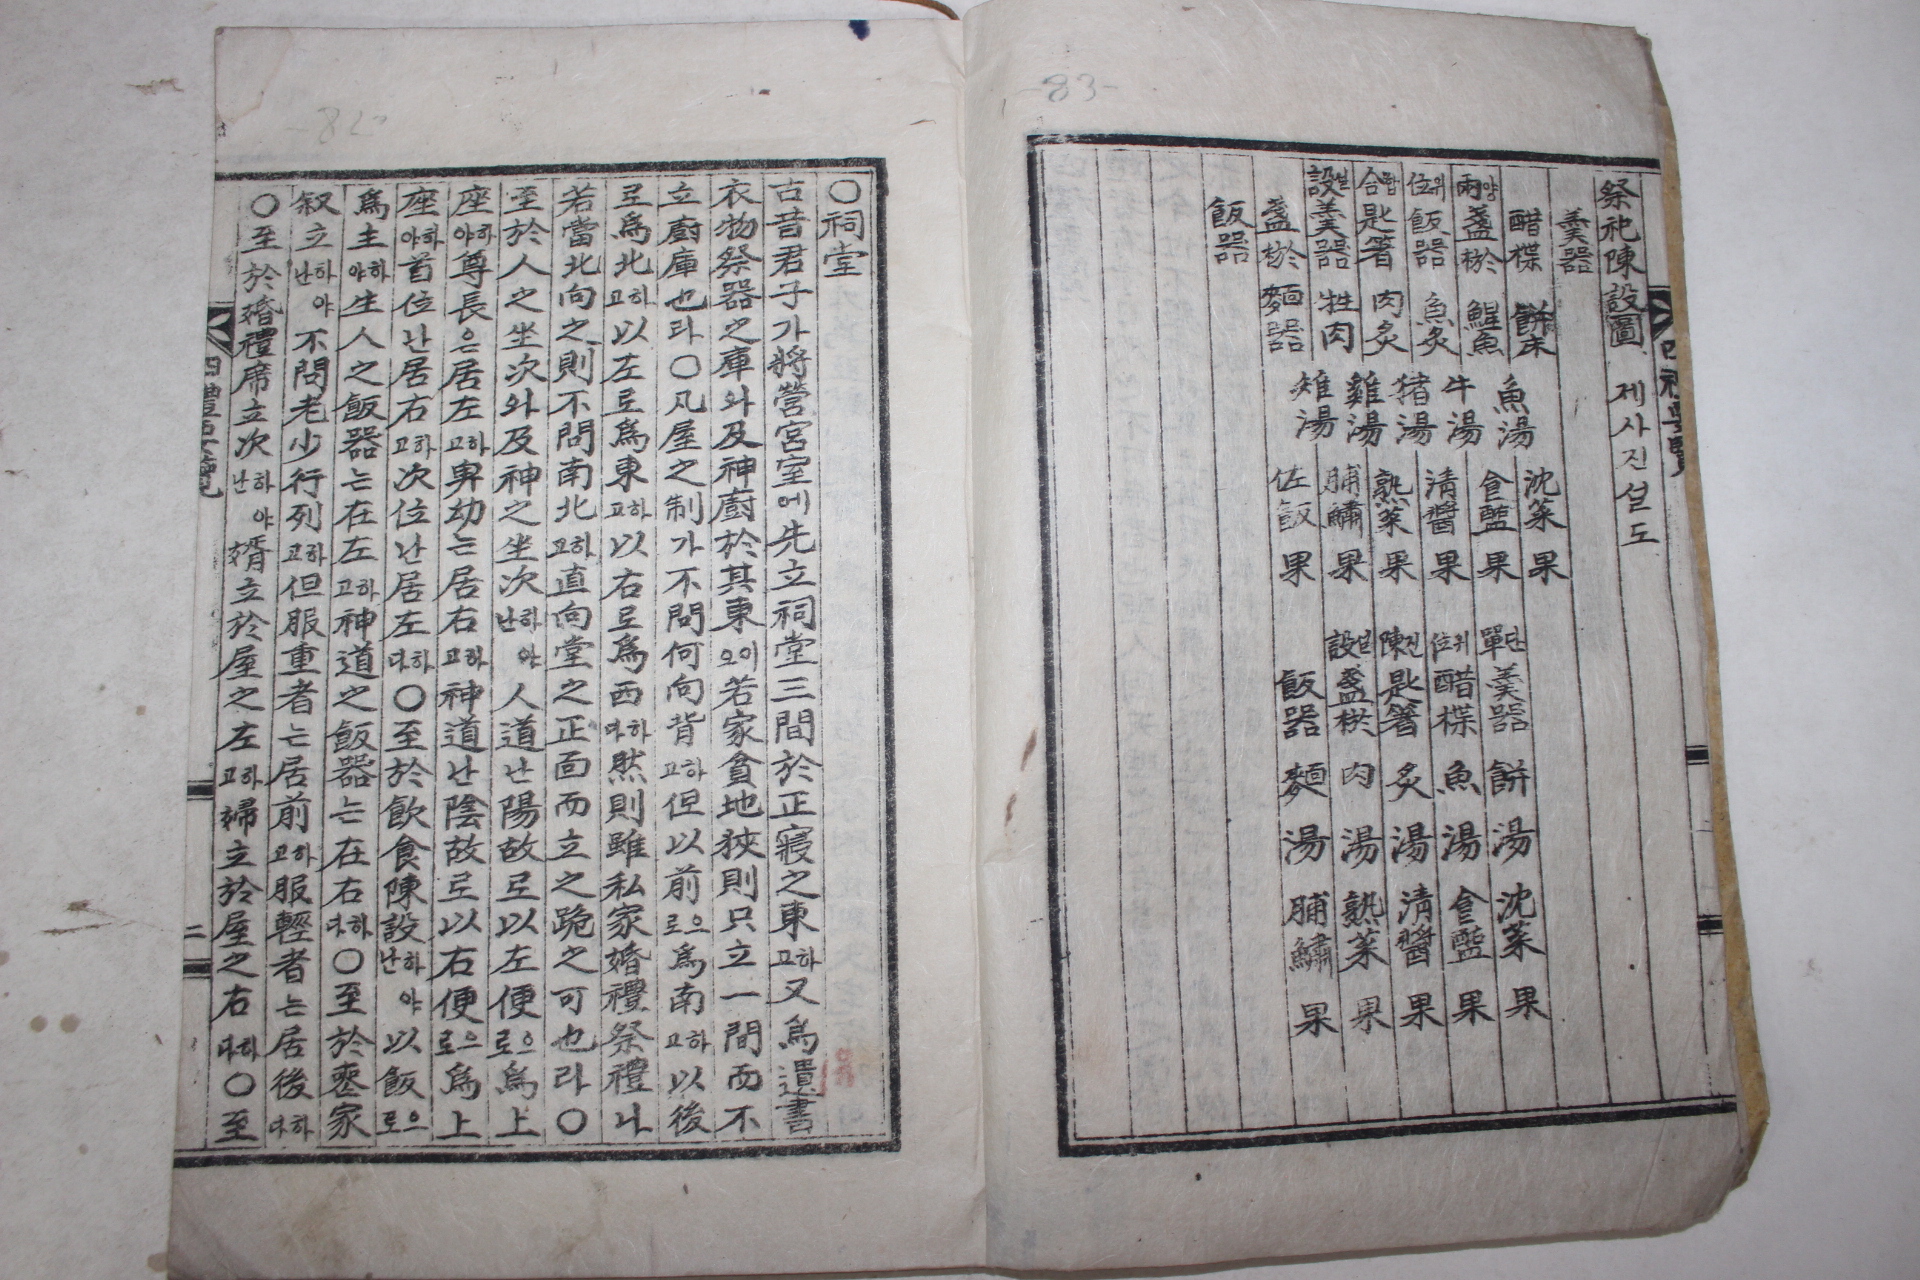 -83-
祭祀陳設圖 제사진설도
羹器
醋楪 餠床 魚湯 沈菜 果
兩양盞拵 鯹魚 牛湯 食醢 果
位위飯器 魚炙 猪湯 淸醬 果
合합匙箸 肉炙 雞湯 熟菜 果
設설羹器 牲肉 雉湯 脯鱐 果
盞拵 麵器 佐飯 果
飯器
單단羹器 餠 湯 沈菜 果
位위醋楪 魚 湯 食醢 果
陳진匙箸 炙 湯 淸醬 果
設설盞拱 肉 湯 熟菜 果
飯器 麵 湯 脯鱐 果
-82-
○祠堂
古昔君子가將營宮室에先立祠堂三間於正寢之東하고又爲遺書
衣物祭器之庫와及神廚於其東이오若家貧地狹則只立一間而不
立廚庫也라○凡屋之制가不問何向背하고但以前으로爲南하고以後
로爲北하고以左로爲東하고以右로爲西하다然則雖私家婚禮祭禮나
若當北向之則不問南北하고直向堂之正面而立之跪之可也라○
至於人之坐次와及神之坐次하난야人道난陽故로以左便으로爲上
座하야尊長은居左하고卑幼는居右하고神道난陰故로以右便으로爲上
座하야首位난居右하고次位난居左하다○至於飮食陳設하난야以飯으로
爲主하야生人之飯器는在左하고神道之飯器는在右하다○至於喪家
叙立하난야不問老少行列하고但服重者는居前하고服輕者는居後하다
○至於婚禮席立次하난야婿立於屋之左하고婦立於屋之右하다○至
四禮要覽
二